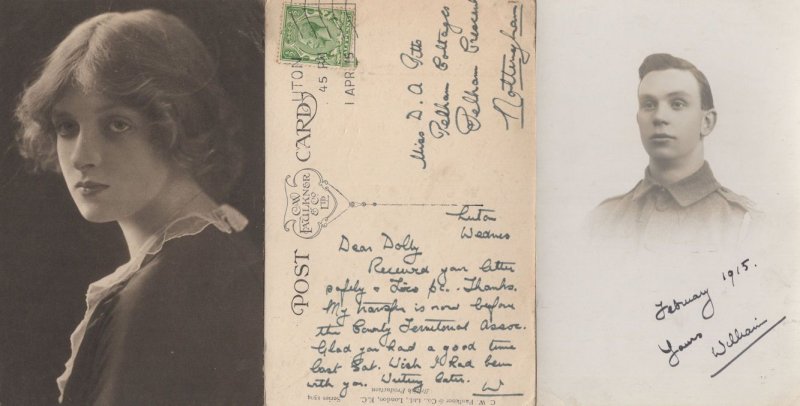 LUTON
45 PM
1 APR 15
Miss D. A. Pitts
Pelham Cottages
Pelham Crescent
Nottingham
POST CARD
C.W.
FAULKNER
& Co
LTD.
Luton
Wednes
Dear Dolly
Received your letter
safely & Leo's pc. Thanks.
My transfer is now before
the County Territorial Assoc.
Glad you had a good time
last Sat. Wish I had been
with you. Writing later.
W
C. W. Faulkner & Co., Ltd., London, E.C.
British Production
Series 1504
February 1915.
Yours
William